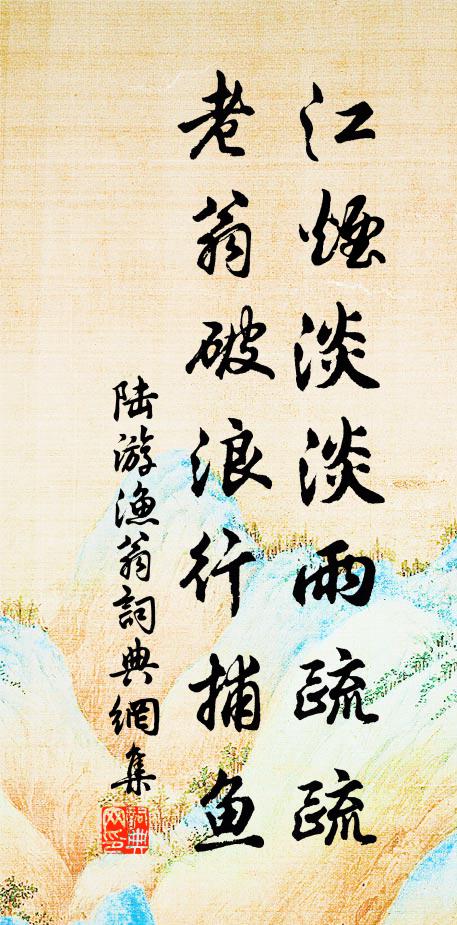 江煙淡淡雨疏疏
老翁破浪行捕魚
陆游渔翁詞典網集
詞典